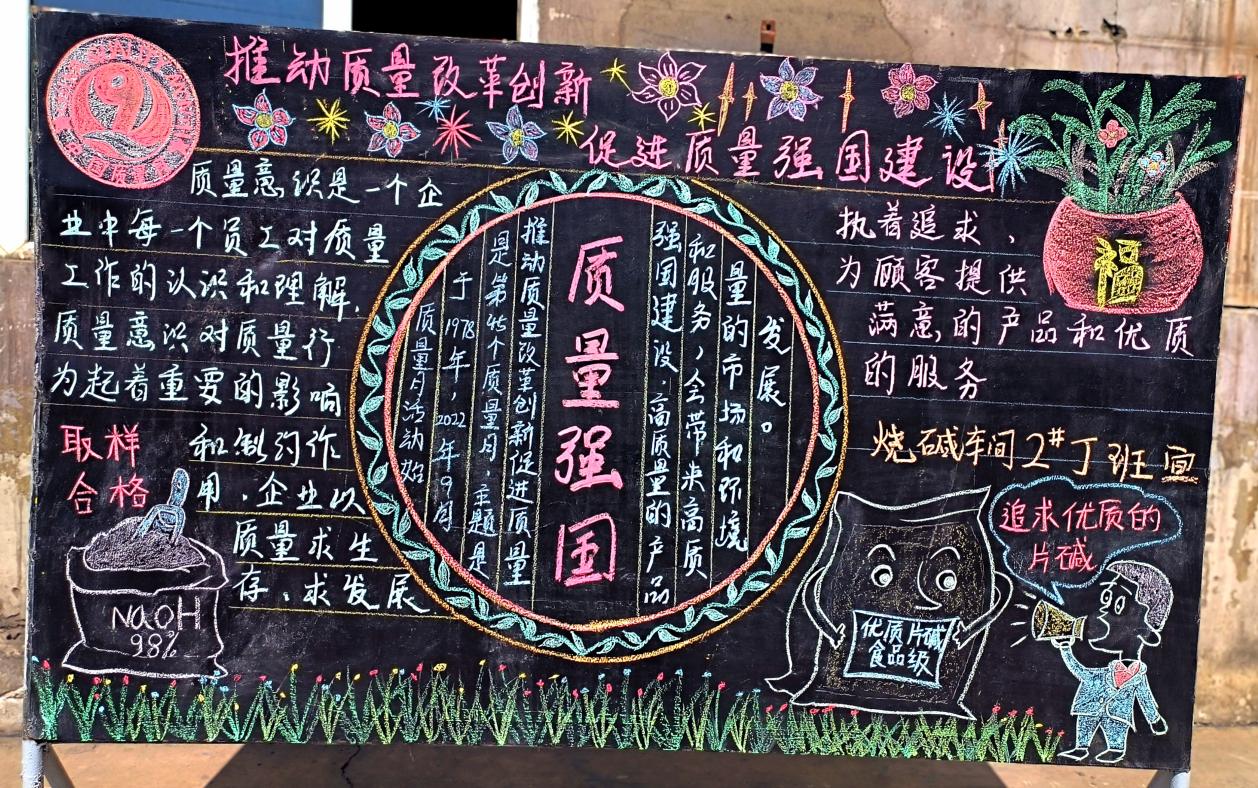 推动质量改革创新
促进质量强国建设
质量意织是一个企
业中每一个员工对质量
工作的认识和理解,
质量意识对质量行
为起着重要的影响
和制约作
用,企业以
质量求生
存、求发展
取样
合格
NaOH
98%
质量月活动始
于1978年,2022年9月
是第45个质量月,主题是
推动质量改革创新促进质量
质量强国
强国建设.高质量的产品
和服务,会带来高质
量的市场和环境
发展。
执着追求、
为顾客提供
满意的产品和优质
的服务
烧碱车间2#丁班宣
追求优质的
片碱
优质片碱
食品级
福